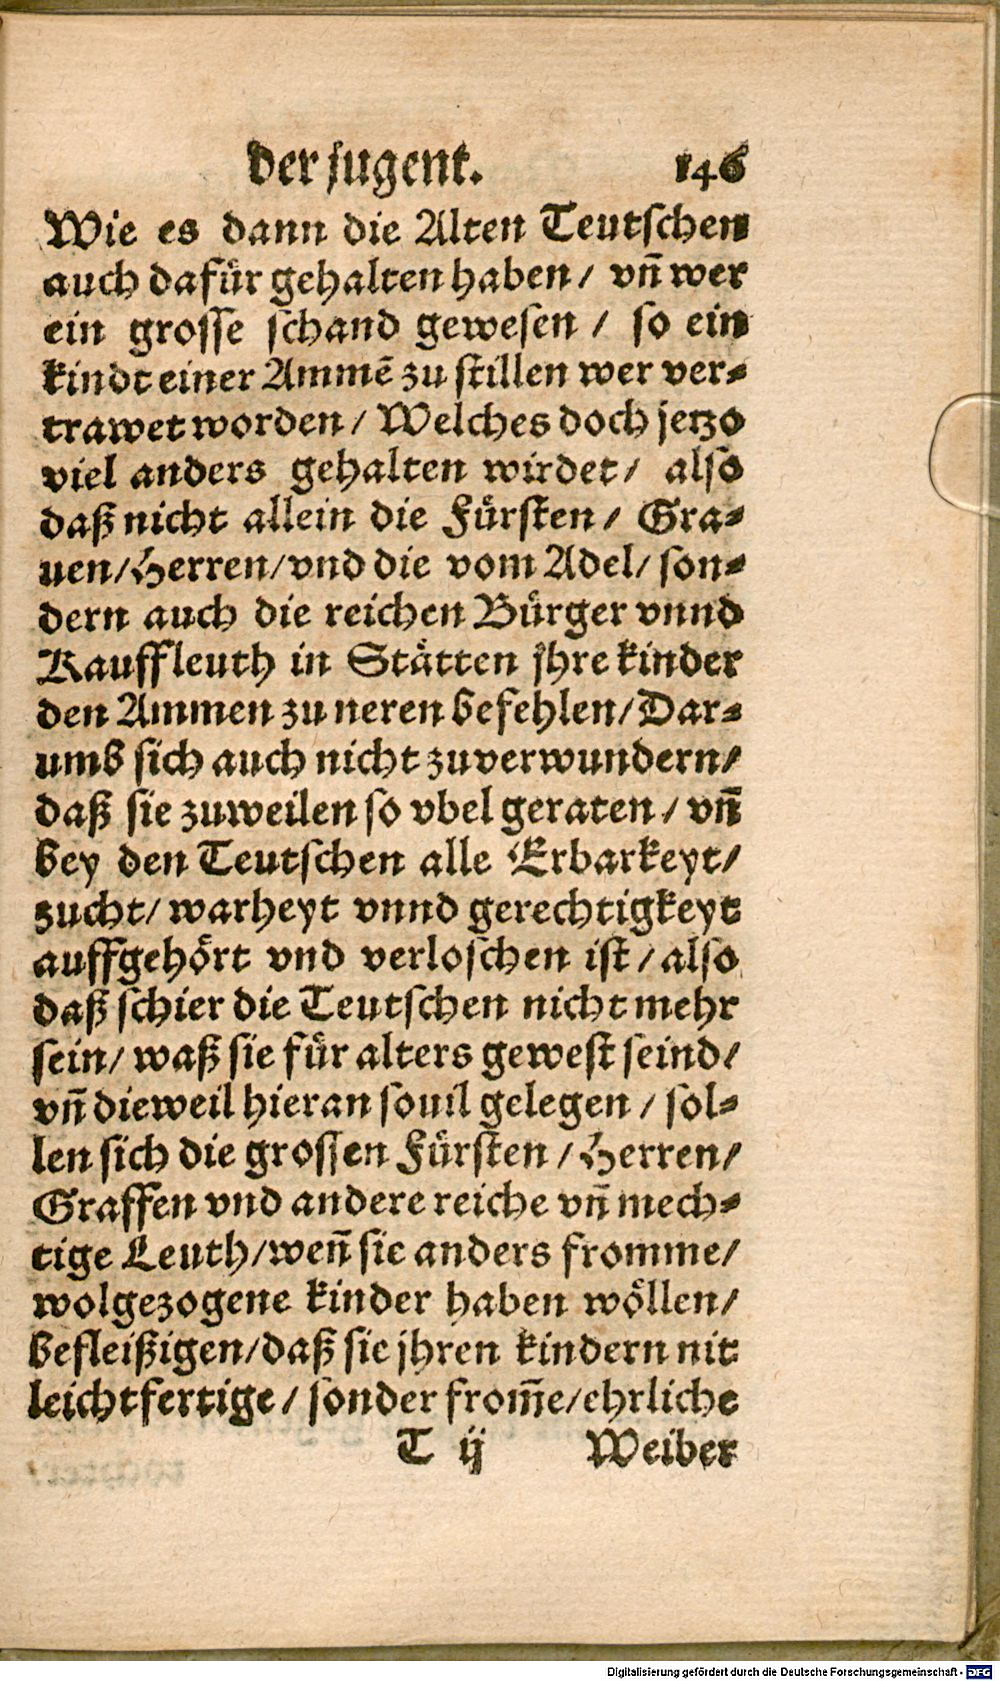 der jugent. 146
Wie es dann die Alten Teutschen
auch dafür gehalten haben / vn̄ wer
ein grosse schand gewesen / so ein
kindt einer Ammē zu stillen wer ver-
trawet worden / Welches doch jetzo
viel anders gehalten wirdet / also
daß nicht allein die Fürsten / Gra-
uen / Herren / vnd die vom Adel / son-
dern auch die reichen Bürger vnnd
Kauffleuth in Stätten jhre kinder
den Ammen zu neren befehlen / Dar-
umb sich auch nicht zuverwundern /
daß sie zuweilen so vbel geraten / vn̄
bey den Teutschen alle Erbarkeyt /
zucht / warheyt vnnd gerechtigkeyt
auffgehört vnd verloschen ist / also
daß schier die Teutschen nicht mehr
sein / waß sie für alters gewest seind /
vn̄ dieweil hieran souil gelegen / sol-
len sich die grossen Fürsten / Herren /
Graffen vnd andere reiche vn̄ mech-
tige Leuth / wen̄ sie anders fromme /
wolgezogene kinder haben wöllen /
befleißigen / daß sie jhren kindern nit
leichtfertige / sonder from̄e / ehrliche
T ij Weiber
Digitalisierung gefördert durch die Deutsche Forschungsgemeinschaft - DFG